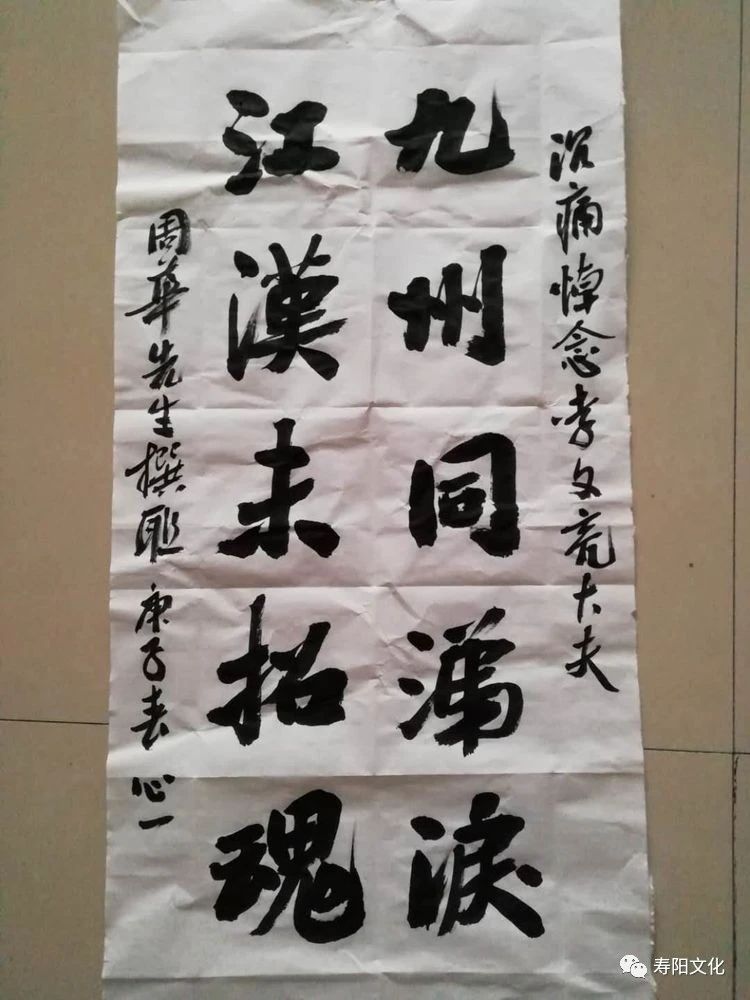 沉痛悼念李文亮大夫
九州同涕淚
江漢未招魂
周華先生撰聯 庚子春 心一
寿阳文化